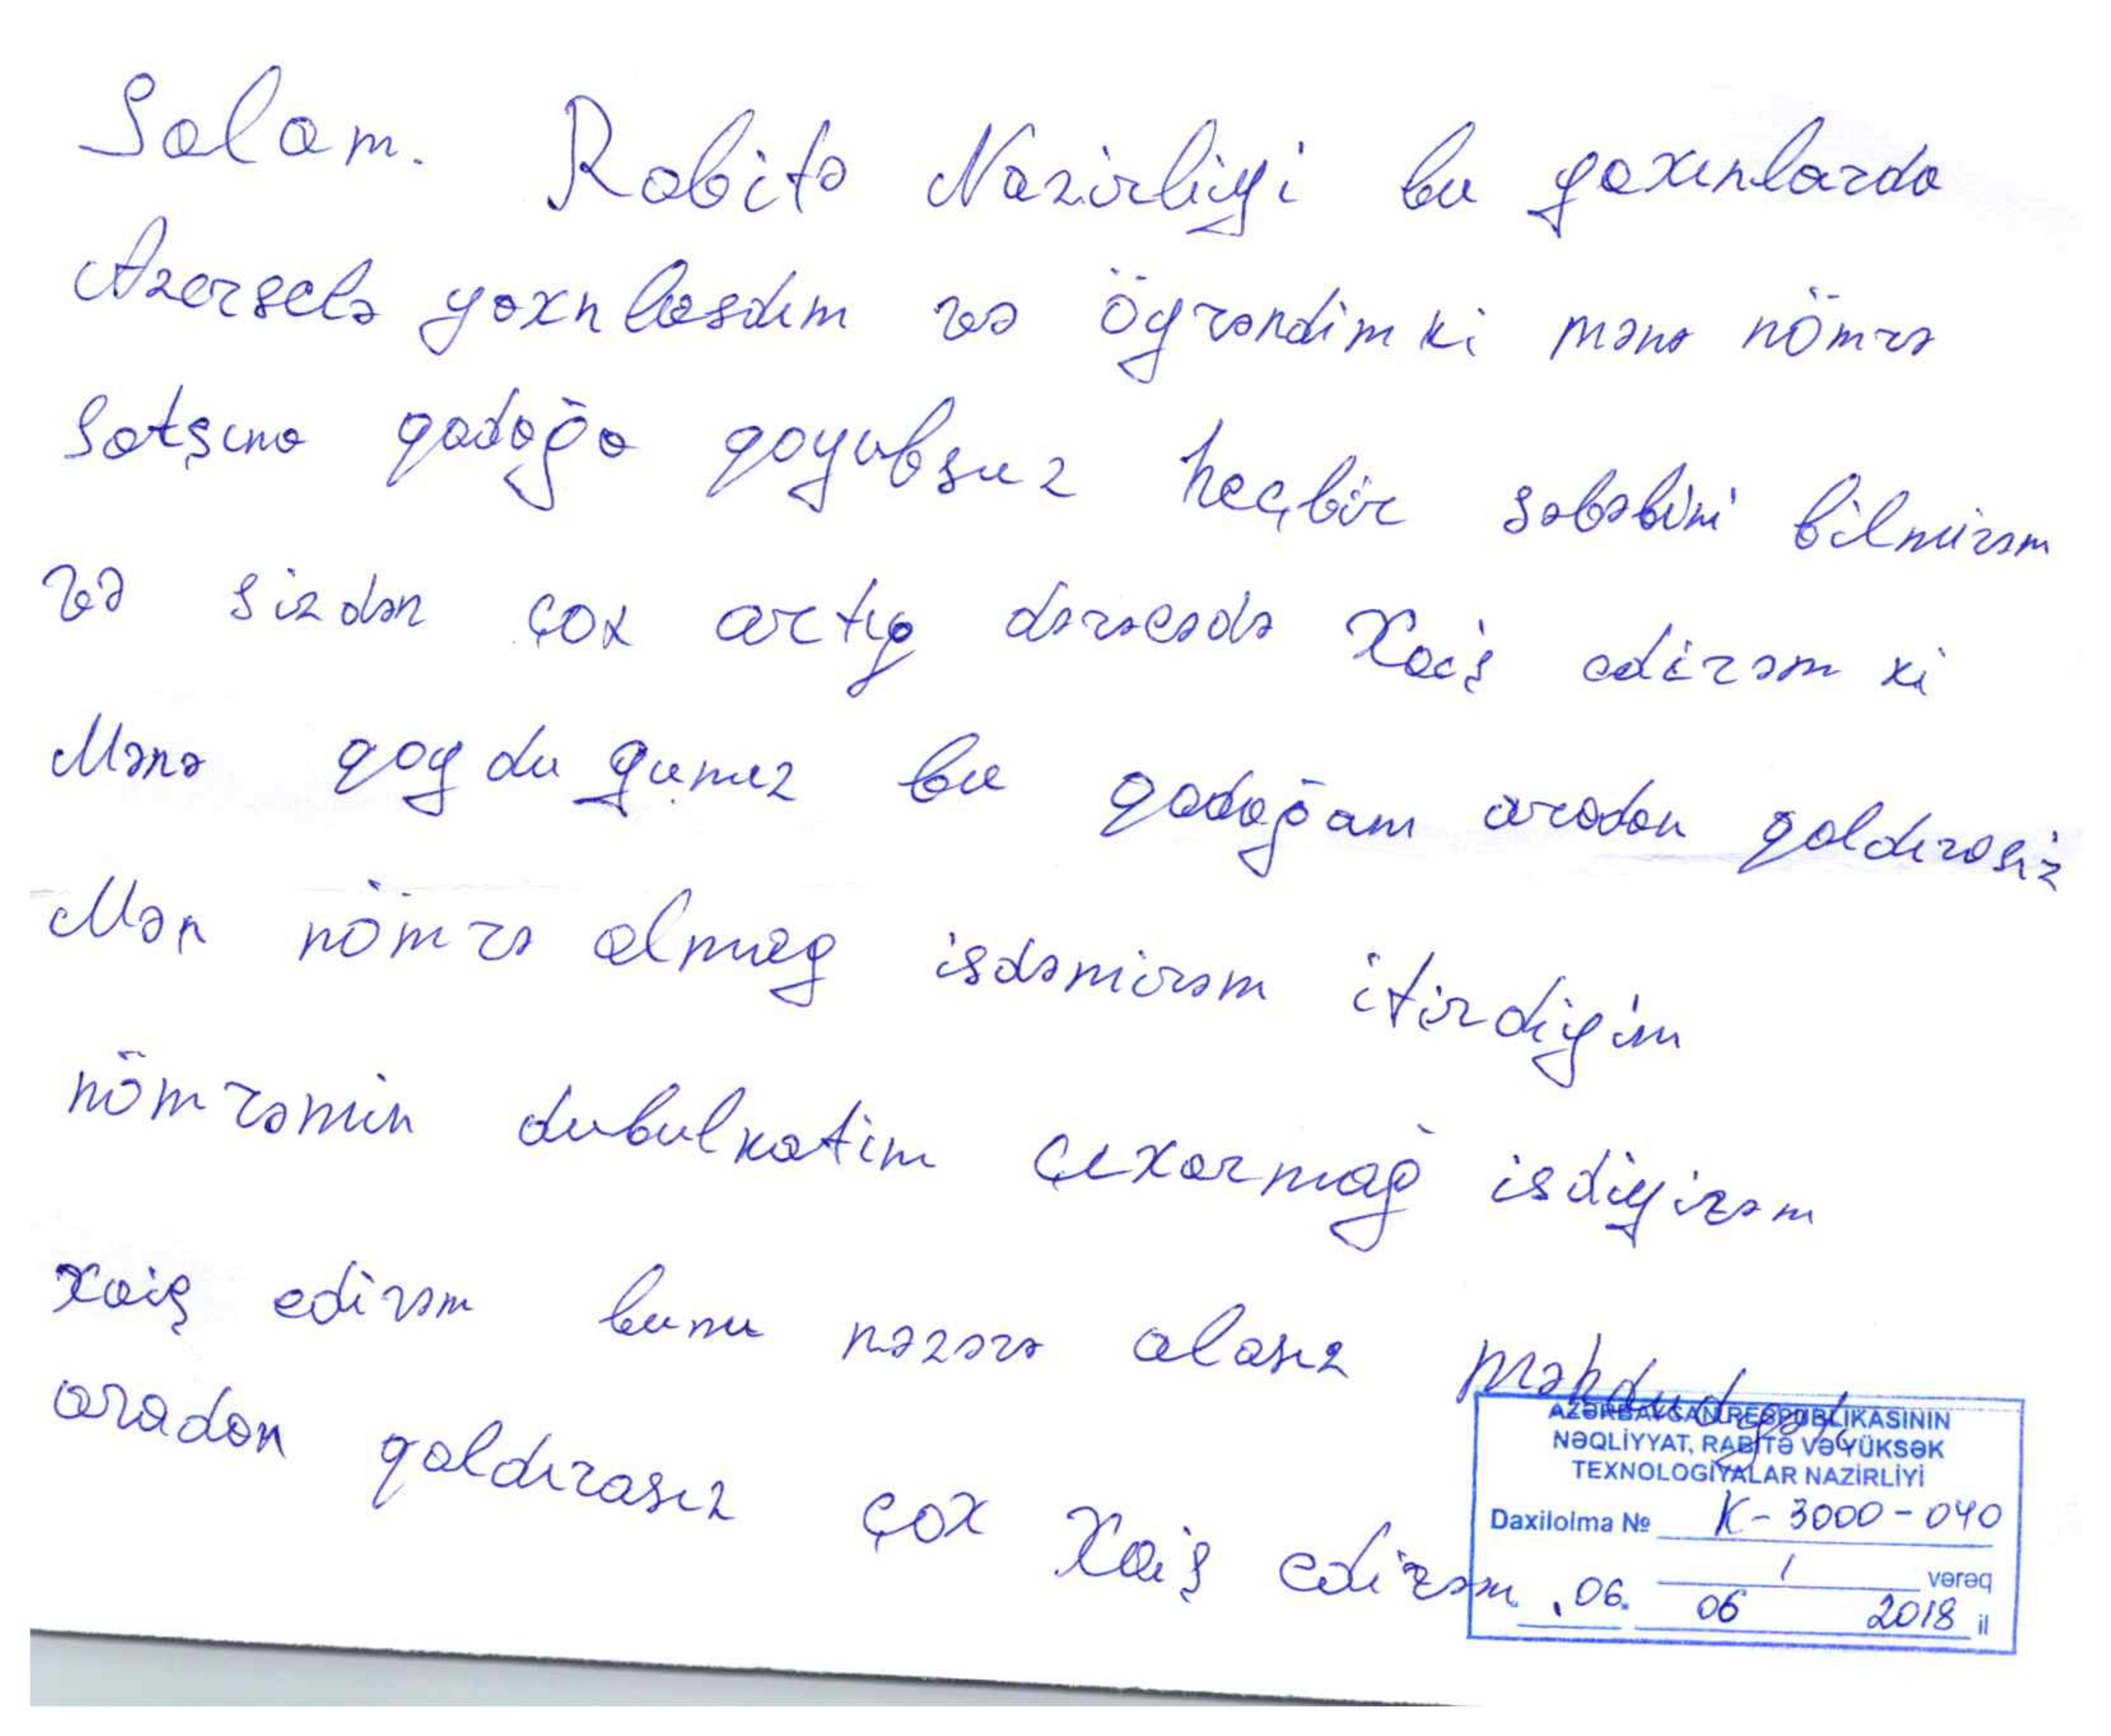 Salam. Rabitə Nazirliyi bu yaxınlarda
Azerselə yaxnlasdım və öyrəndimki mənə nömrə
Satşına qadağa qoyubsuz heçbir səbəbini bilmirəm
və sizdən çox artıg dərəcədə Xaiş edirəm ki
Mənə qoydugunuz bu qadağanı aradan qaldırasız
Mən nömrə almag isdəmirəm itirdiyim
nömrəmin dubulkatını çıxarmağ isdiyirəm
xaiş edirəm bunu nəzərə alasız məhdudyəti
aradan qaldırasız çox Xaiş edirəm
AZƏRBAYCAN RESPUBLİKASININ
NƏQLİYYAT, RABİTƏ VƏ YÜKSƏK
TEXNOLOGİYALAR NAZİRLİYİ
Daxilolma № K-3000-040
1 vərəq
06. 06 2018 il